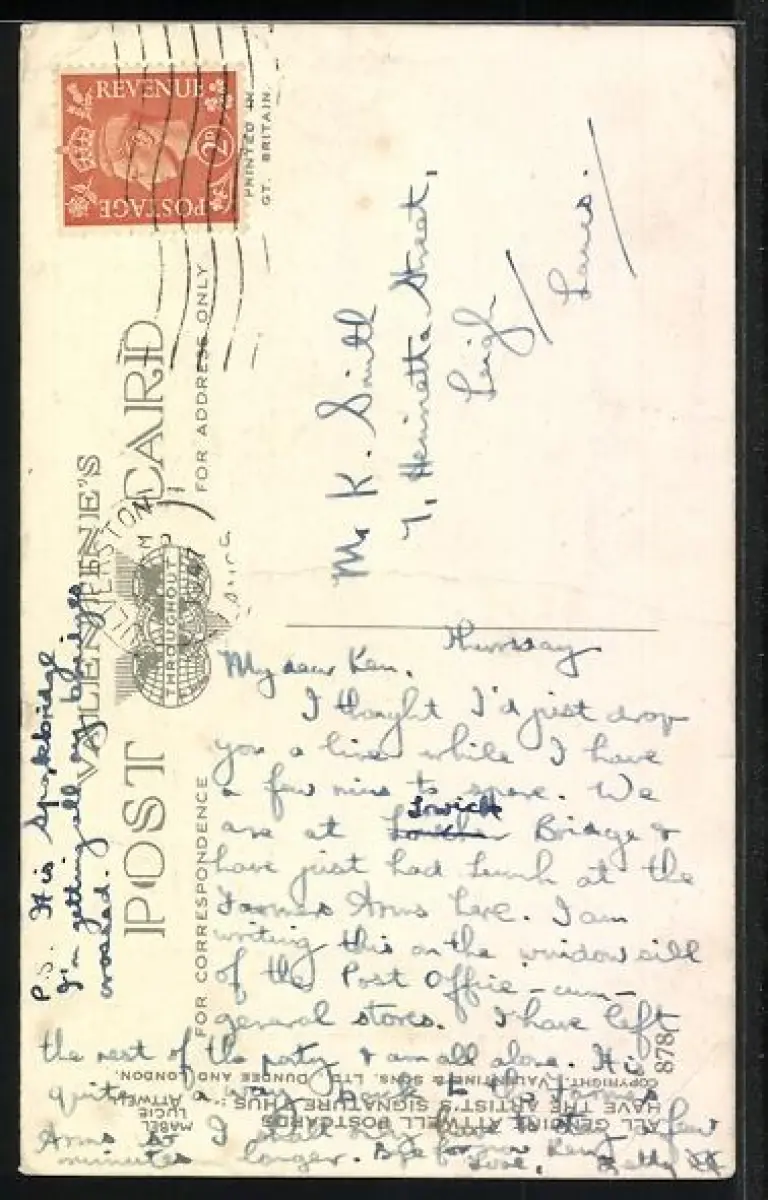 REVENUE
POSTAGE
2D
PRINTED IN
GT. BRITAIN.
VALENTINE'S
POST CARD
THROUGHOUT
FOR CORRESPONDENCE
FOR ADDRESS ONLY
Mr K. Smith
7, Henrietta Street,
Leigh
Lancs.
Thursday
My dear Ken,
I thought I'd just drop
you a line while I have
a few mins to spare. We
Lowick
are at Bridge &
have just had lunch at the
Farmers Arms here. I am
writing this on the window sill
of the Post Office - cum -
general stores. I have left
the rest of the party & am all alone. It is
quite a way back to the Farmers
Arms so I shall only have a few
minutes longer. Bye for now Ken
Love, Betty XX
P.S. It is Spark bridge
I'm getting all my bridges
crossed.
878
COPYRIGHT, VALENTINE & SONS, LTD., DUNDEE AND LONDON.
ALL GENUINE ATTWELL POSTCARDS
HAVE THE ARTIST'S SIGNATURE THUS:
MABEL
LUCIE
ATTWELL